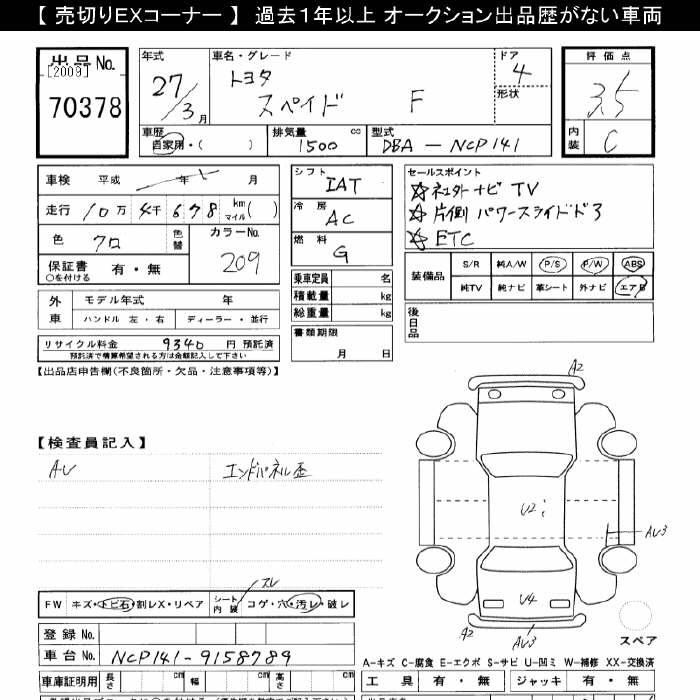 【 売切りEXコーナー 】 過去1年以上 オークション出品歴がない車両
出品No.
[2009]
70378
年式
27/3月
車名・グレード
トヨタ
スペイド F
ドア
4
形状
評価点
3.5
内装
C
車歴
自家用・( )
排気量 cc
1500
型式
DBA - NCP141
車検 平成 年 月
走行 10万 4千 678 km マイル( )
色 クロ 色替
カラーNo.
209
保証書 有・無
○を付ける
シフト
IAT
冷房
AC
燃料
G
乗車定員 名
積載量 kg
総重量 kg
書類期限
月 日
セールスポイント
☆社外ナビ TV
☆片側パワースライドドア
☆ETC
装備品
S/R 純A/W P/S P/W ABS
純TV 純ナビ 革シート 外ナビ エアB
後日品
外車
モデル年式 年
ハンドル 左・右 ディーラー・並行
リサイクル料金 9340 円 預託済
預託済で精算希望される方は金額記入して下さい
【出品店申告欄(不良箇所・欠品・注意事項等)】
【検査員記入】
AU エンドパネル歪
A2
U2
AU3
U4
A2
AU3
スペア
FW キズ・トビ石・割レX・リペア
シート内装 スレ コゲ・穴・汚レ・破レ
登録No.
車台No. NCP141-9158789
車庫証明用 長さ cm 幅 cm cm
A-キズ C-腐食 E-エクボ S-サビ U-凹ミ W-補修 XX-交換済
工具 有・無 ジャッキ 有・無